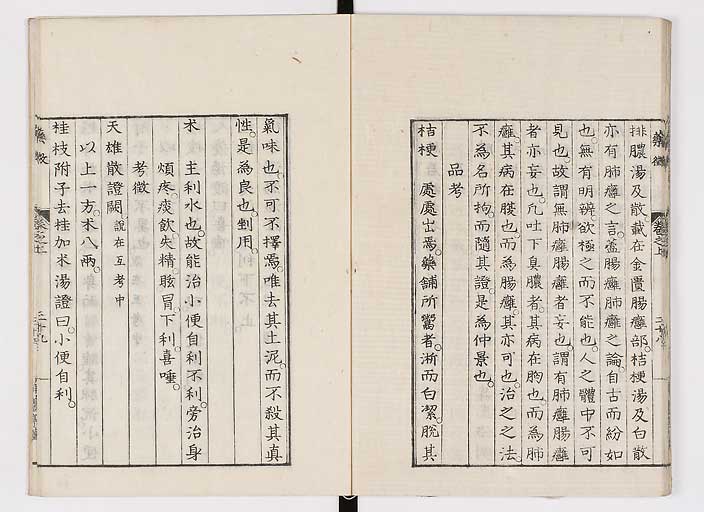 排膿湯及散載在金匱腸癰部。桔梗湯及白散
亦有肺癰之言。蓋腸癰肺癰之論。自古而紛如
也。無有明辨。欲極之而不能也。人之體中不可
見也。故謂無肺癰腸癰者妄也。謂有肺癰腸癰
者亦妄也。凡吐下臭膿者。其病在胸也。而為肺
癰。其病在腹也。而為腸癰。其亦可也。治之之法
不為名所拘。而隨其證。是為仲景也。
品考
桔梗 處處出焉。藥舖所鬻者。淅而白潔。脫其
氣味也。不可不擇焉。唯去其土泥。而不殺其真
性。是為良也。剉用。
朮 主利水也。故能治小便自利不利。旁治身
煩疼。痰飲。失精。眩冒。下利。喜唾。
考徵
天雄散證闕。說在互考中
以上一方。朮八兩。
桂枝附子去桂加朮湯證曰。小便自利。
藥徵 卷之上 三十九